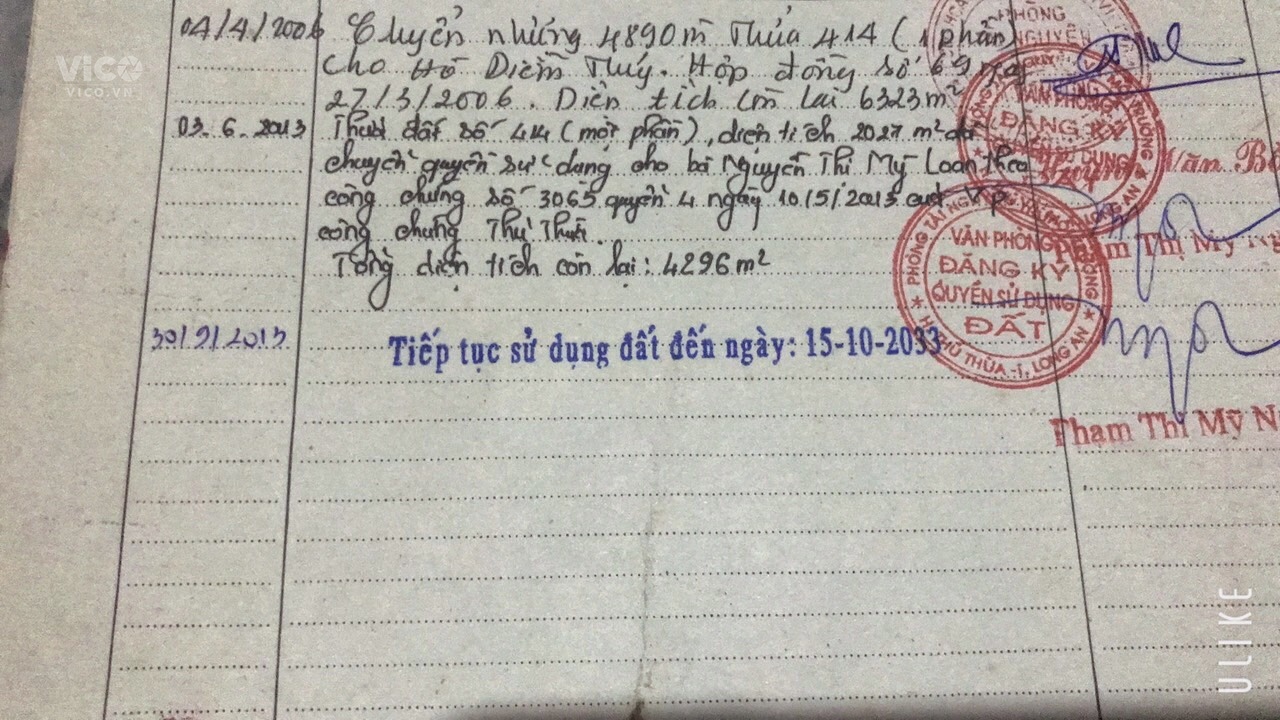 VICO
VICO.VN
04/4/2006 Chuyển nhứng 4890m Thửa 414 (1 phần)
cho Hồ Diễm Thúy. Hợp đồng số 69 ngày
27/3/2006. Diện tích còn lại 6323m²
03.6.2013 Thửa đất số 414 (một phần), diện tích 2027 m² đã
chuyển quyền sử dụng cho bà Nguyễn Thị Mỹ Loan theo
công chứng số 3065 quyển 4 ngày 10/5/2013 của VP
công chứng Thủ Thừa.
Tổng diện tích còn lại: 4296m²
30/9/2013 Tiếp tục sử dụng đất đến ngày: 15-10-2033
PHÒNG
NGUYÊN
VĂN PHÒNG
ĐĂNG KÝ
SỬ DỤNG
Văn Bé
Phạm Thị Mỹ
PHÒNG TÀI NGUYÊN
VĂN PHÒNG
ĐĂNG KÝ
QUYỀN SỬ DỤNG
ĐẤT
H. THỦ THỪA - T. LONG AN
Phạm Thị Mỹ N
ULIKE